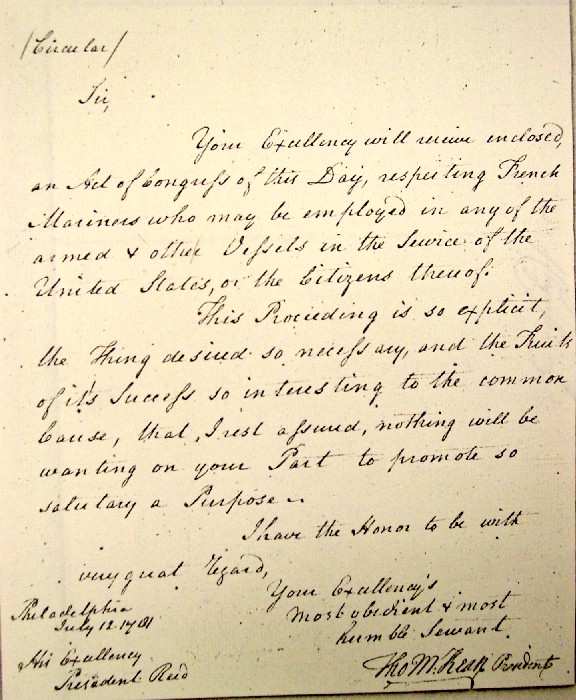 /Circular/
Sir,
Your Excellency will receive enclosed,
an Act of Congress of this Day, respecting French
Mariners who may be employed in any of the
armed & other Vessels in the Service of the
United States, or the Citizens thereof.
This Proceeding is so explicit,
the Thing desired so necessary, and the Fruits
of it's Success so interesting to the common
Cause, that, I rest assured, nothing will be
wanting on your Part to promote so
salutary a Purpose ~
I have the Honor to be with
very great Regard,
Your Excellency's
most obedient & most
humble Servant.
Tho M:Kean President
Philadelphia
July 12. 1781
His Excellency
President Reed